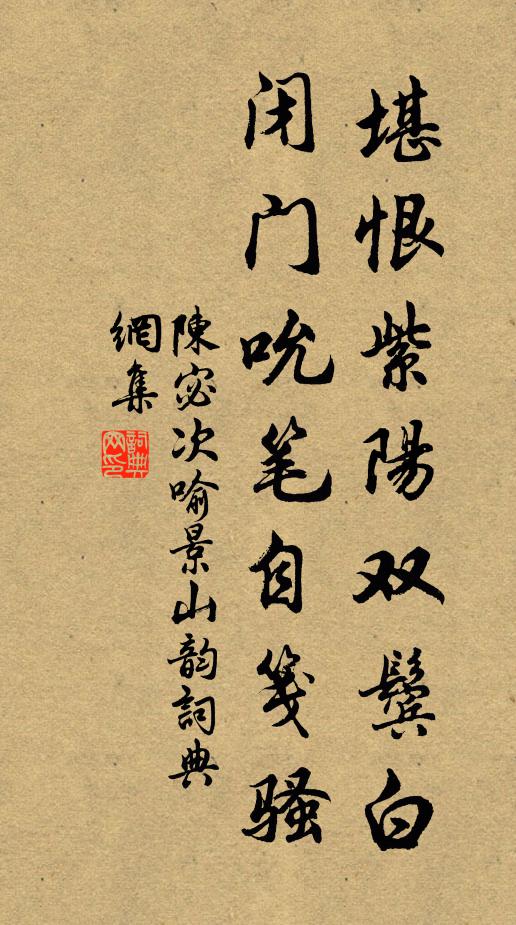 堪恨紫陽双鬓白
闭门吮笔自笺骚
陳宓次喻景山韵詞典
網集
詞典
网印